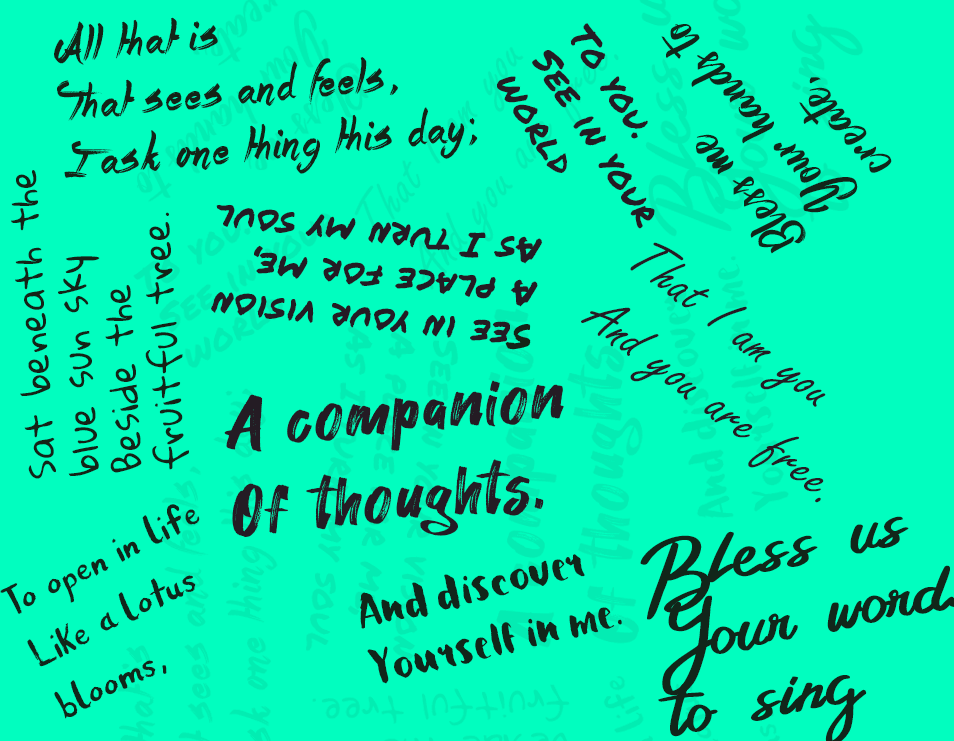 All that is
That sees and feels,
I ask one thing this day;
TO YOU.
SEE IN YOUR
WORLD
Bless me
Your hands to
create.
Sat beneath the
blue sun sky
Beside the
fruitful tree.
SEE IN YOUR VISION
A PLACE FOR ME,
AS I TURN MY SOUL
That I am you
And you are free.
A companion
Of thoughts.
To open in life
Like a lotus
blooms,
And discover
Yourself in me.
Bless us
Your word
to sing